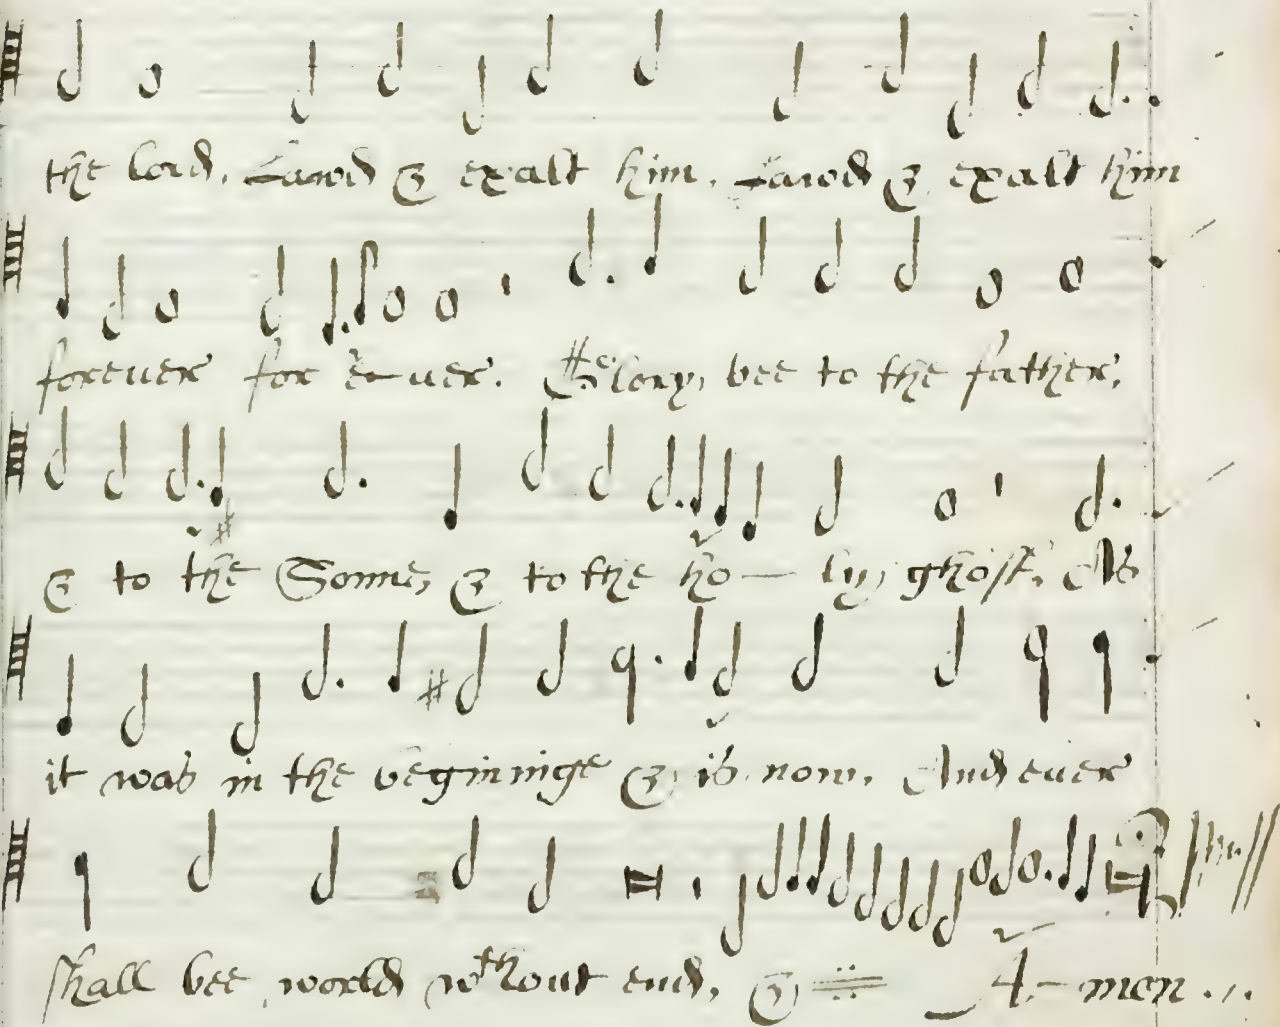 the lord. Lawd & exalt him. Lawd & exalt him
foreuer for e-uer. Glory bee to the father,
& to the Sonne, & to the ho— ly ghost. As
it was in the beginninge & is now. And euer
shall bee world wthout end. & A- men